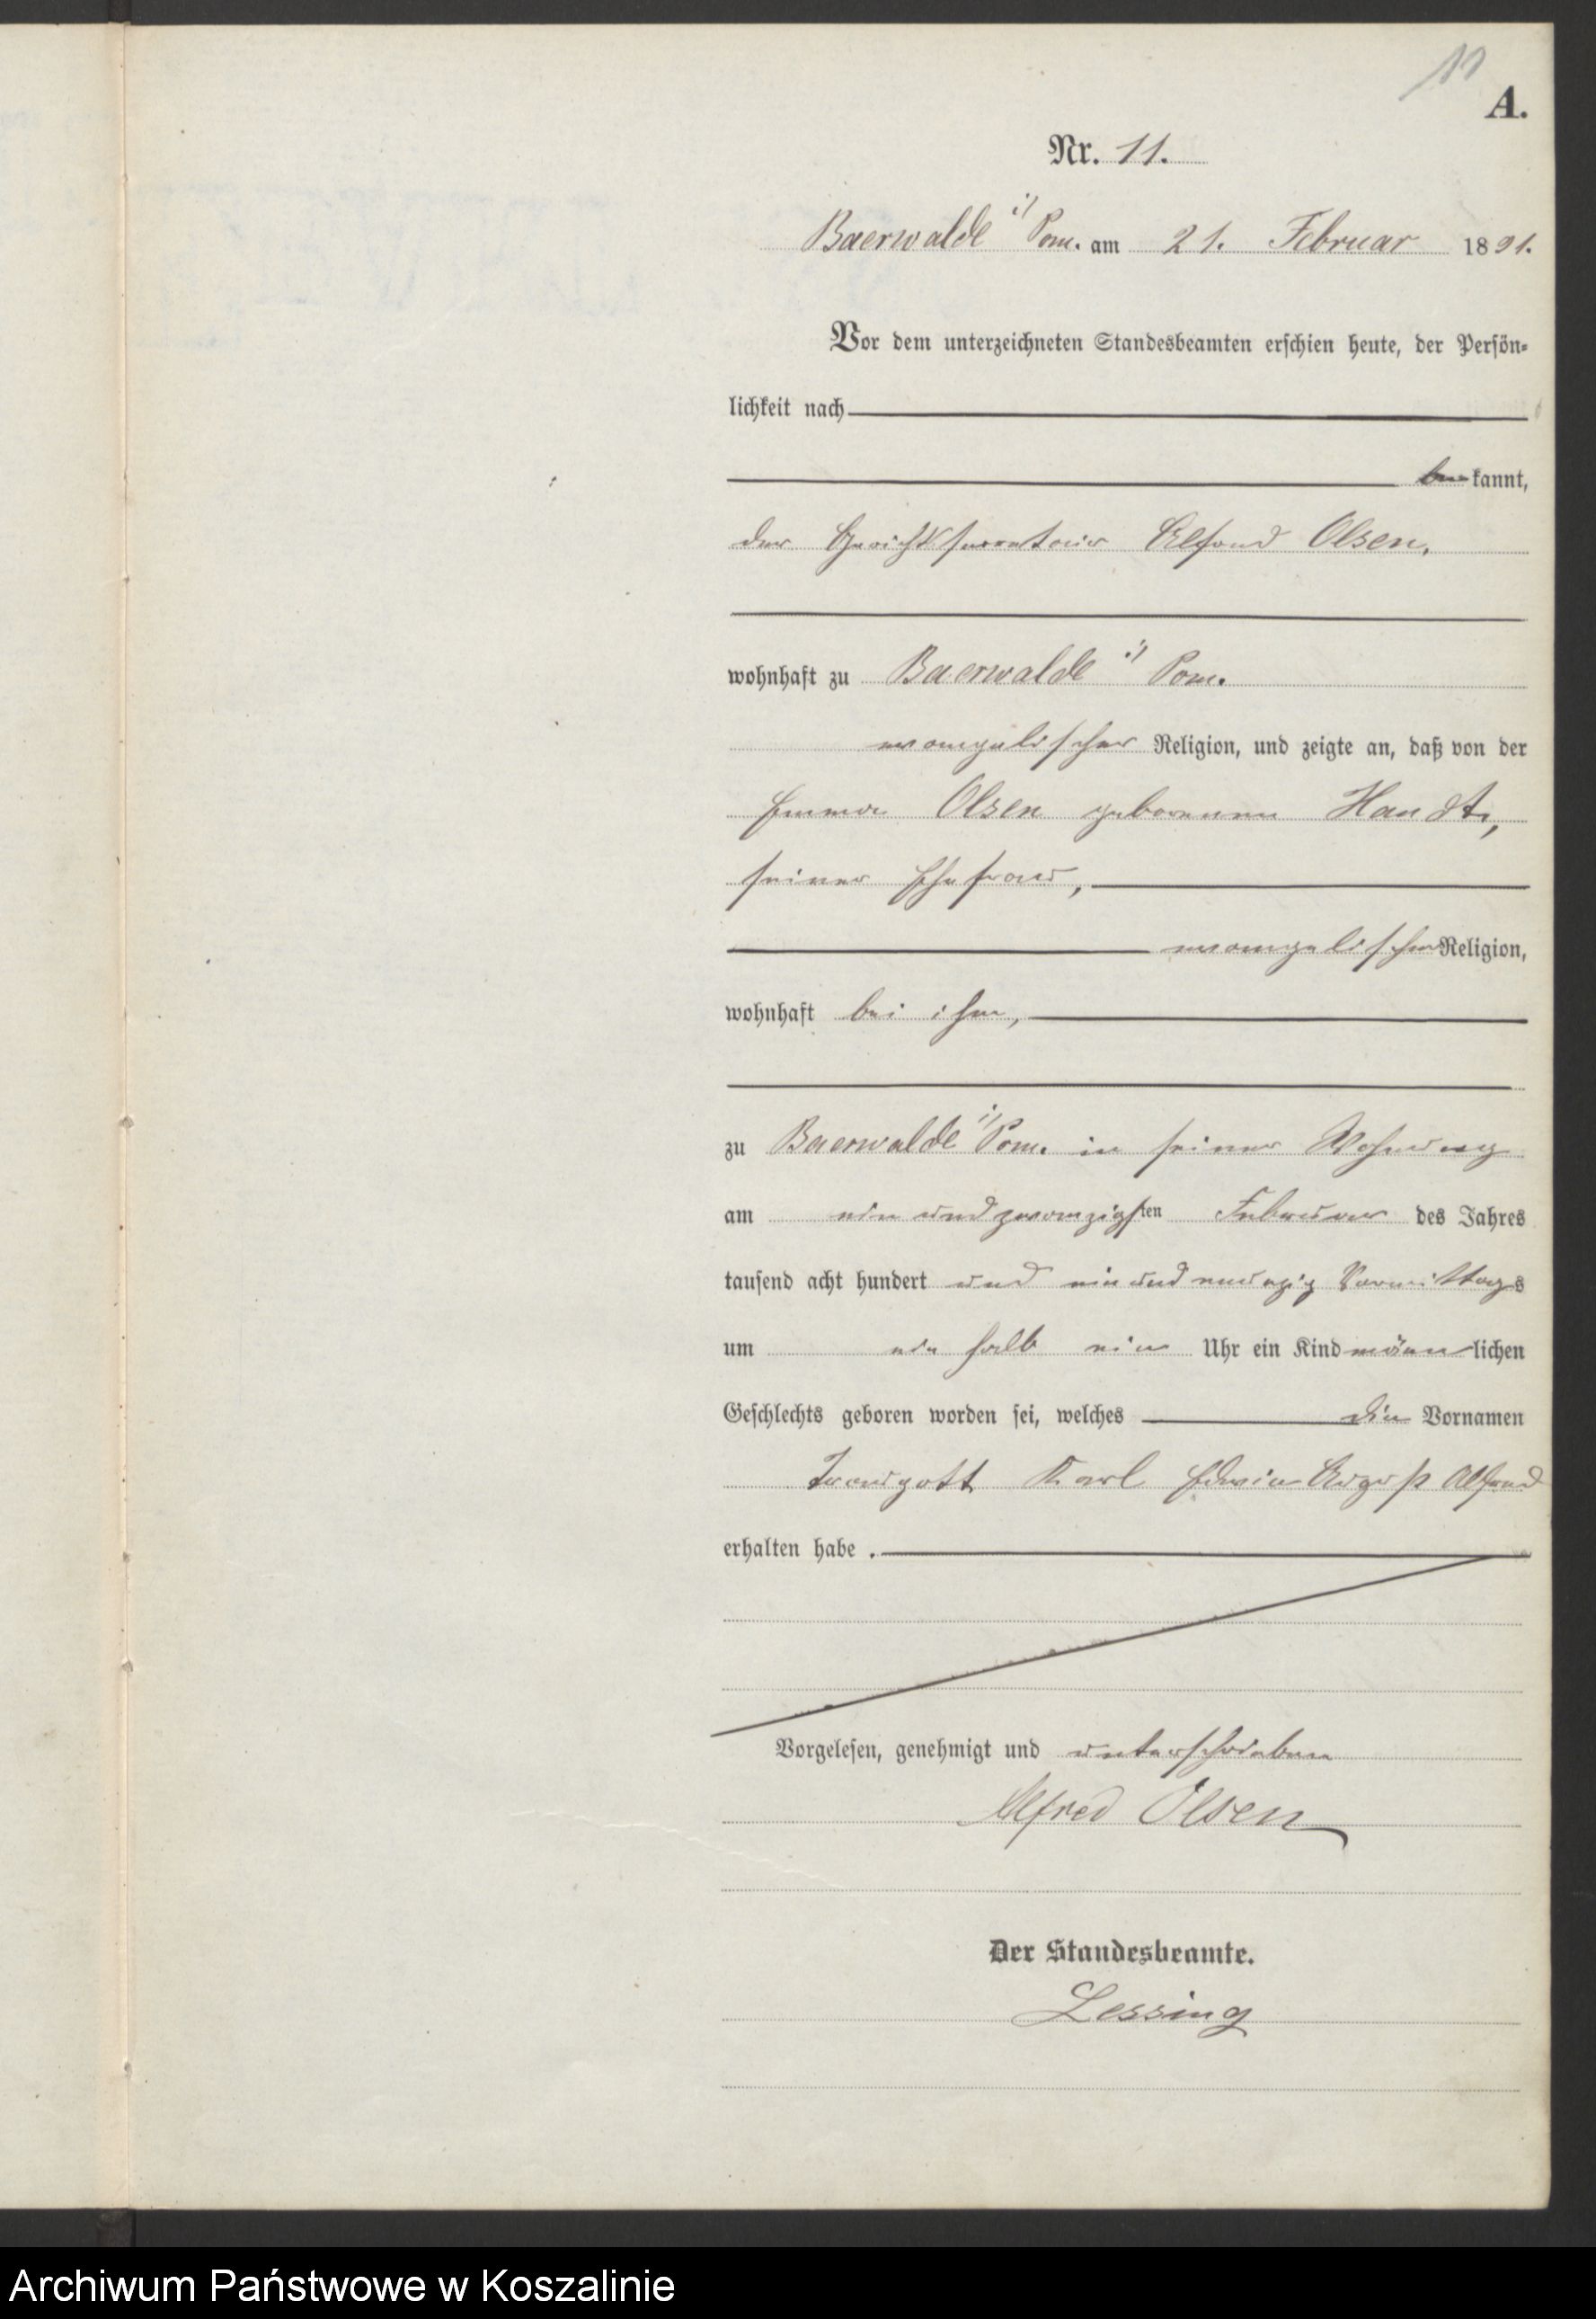 11
A.
Nr. 11.
Baerwalde i/ Pom. am 21. Februar 1891.
Vor dem unterzeichneten Standesbeamten erschien heute, der Persön-
lichkeit nach
bekannt,
der Gerichtssecretair Alfred Olsen,
wohnhaft zu Baerwalde i/ Pom.
evangelischer Religion, und zeigte an, daß von der
Emma Olsen geborenen Handt,
seiner Ehefrau,
evangelischer Religion,
wohnhaft bei ihm,
zu Baerwalde i/ Pom. in seiner Wohnung
am ein und zwanzigsten Februar des Jahres
tausend acht hundert und ein und neunzig Vormittags
um ein halb ein Uhr ein Kind männlichen
Geschlechts geboren worden sei, welches die Vornamen
Traugott Karl Edwin August Alfred
erhalten habe.
Vorgelesen, genehmigt und unterschrieben
Alfred Olsen
Der Standesbeamte.
Lessing
Archiwum Państwowe w Koszalinie